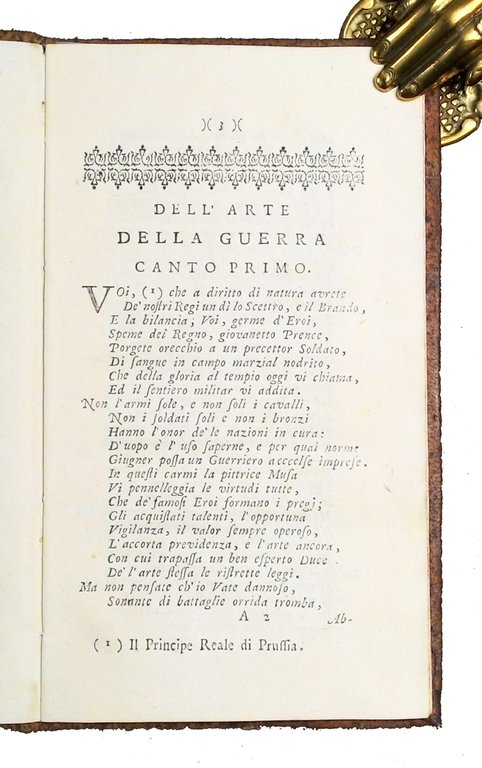 )( 3 )(
DELL' ARTE
DELLA GUERRA
CANTO PRIMO.
VOi, (1) che a diritto di natura avrete
De' noſtri Regi un dì lo Scettro, e il Brando,
E la bilancia; Voi, germe d'Eroi,
Speme del Regno, giovanetto Prence,
Porgete orecchio a un precettor Soldato,
Di ſangue in campo marzial nodrito,
Che della gloria al tempio oggi vi chiama,
Ed il ſentiero militar vi addita.
Non l'armi ſole, e non ſoli i cavalli,
Non i ſoldati ſoli e non i bronzi
Hanno l'onor de'le nazioni in cura:
D'uopo è l' uſo ſaperne, e per quai norme
Giugner poſſa un Guerriero a eccelſe impreſe.
In queſti carmi la pittrice Muſa
Vi pennelleggia le virtudi tutte,
Che de' famoſi Eroi formano i pregj;
Gli acquiſtati talenti, l'opportuna
Vigilanza, il valor ſempre operoſo,
L'accorta previdenza, e l'arte ancora,
Con cui trapaſſa un ben eſperto Duce
De' l'arte ſteſſa le riſtrette leggi.
Ma non penſate ch'io Vate dannoſo,
Sonante di battaglie orrida tromba,
A 2 Ab-
(1) Il Principe Reale di Pruſſia.